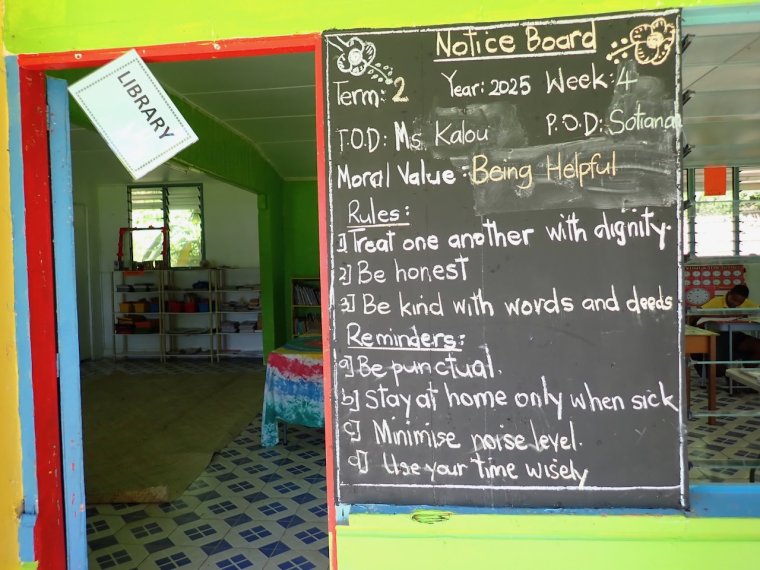 LIBRARY
Notice Board
Term: 2 Year: 2025 Week: 4
T.O.D: Ms Kalou P.O.D: Sotiana
Moral Value: Being Helpful
Rules:
1] Treat one another with dignity.
2] Be honest
3] Be kind with words and deeds
Reminders:
a] Be punctual.
b] Stay at home only when sick
c] Minimise noise level.
d] Use your time wisely